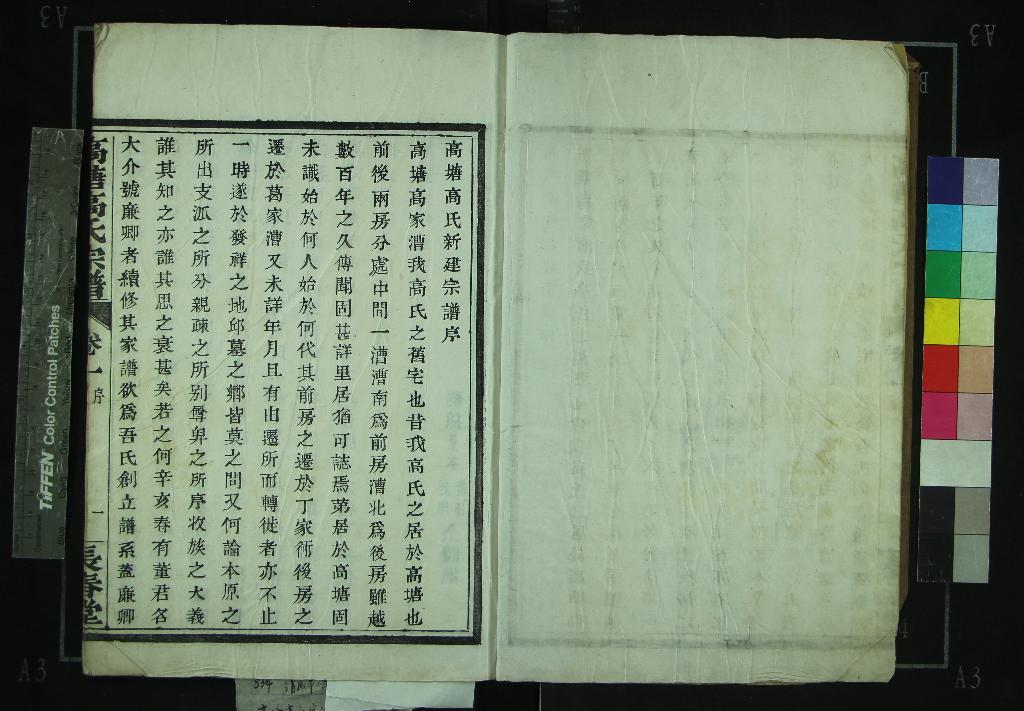 高塘高氏新建宗譜序
高塘高家漕我高氏之舊宅也昔我高氏之居於高塘也
前後兩房分處中間一漕漕南爲前房漕北爲後房雖越
數百年之久傳聞固甚詳里居猶可誌焉第居於高塘固
未識始於何人始於何代其前房之遷於丁家衖後房之
遷於葛家漕又未詳年月且有由遷所而轉徙者亦不止
一時遂於發祥之地邱墓之鄉皆莫之問又何論本原之
所出支派之所分親疎之所别尊卑之所序收族之大義
誰其知之亦誰其思之衰甚矣若之何辛亥春有董君名
大介號廉卿者續修其家譜欲爲吾氏創立譜系蓋廉卿
高塘高氏宗譜
卷一
序
一
長春堂
TIFFEN Color Control Patches
A3
A3
A3
A3
B
4